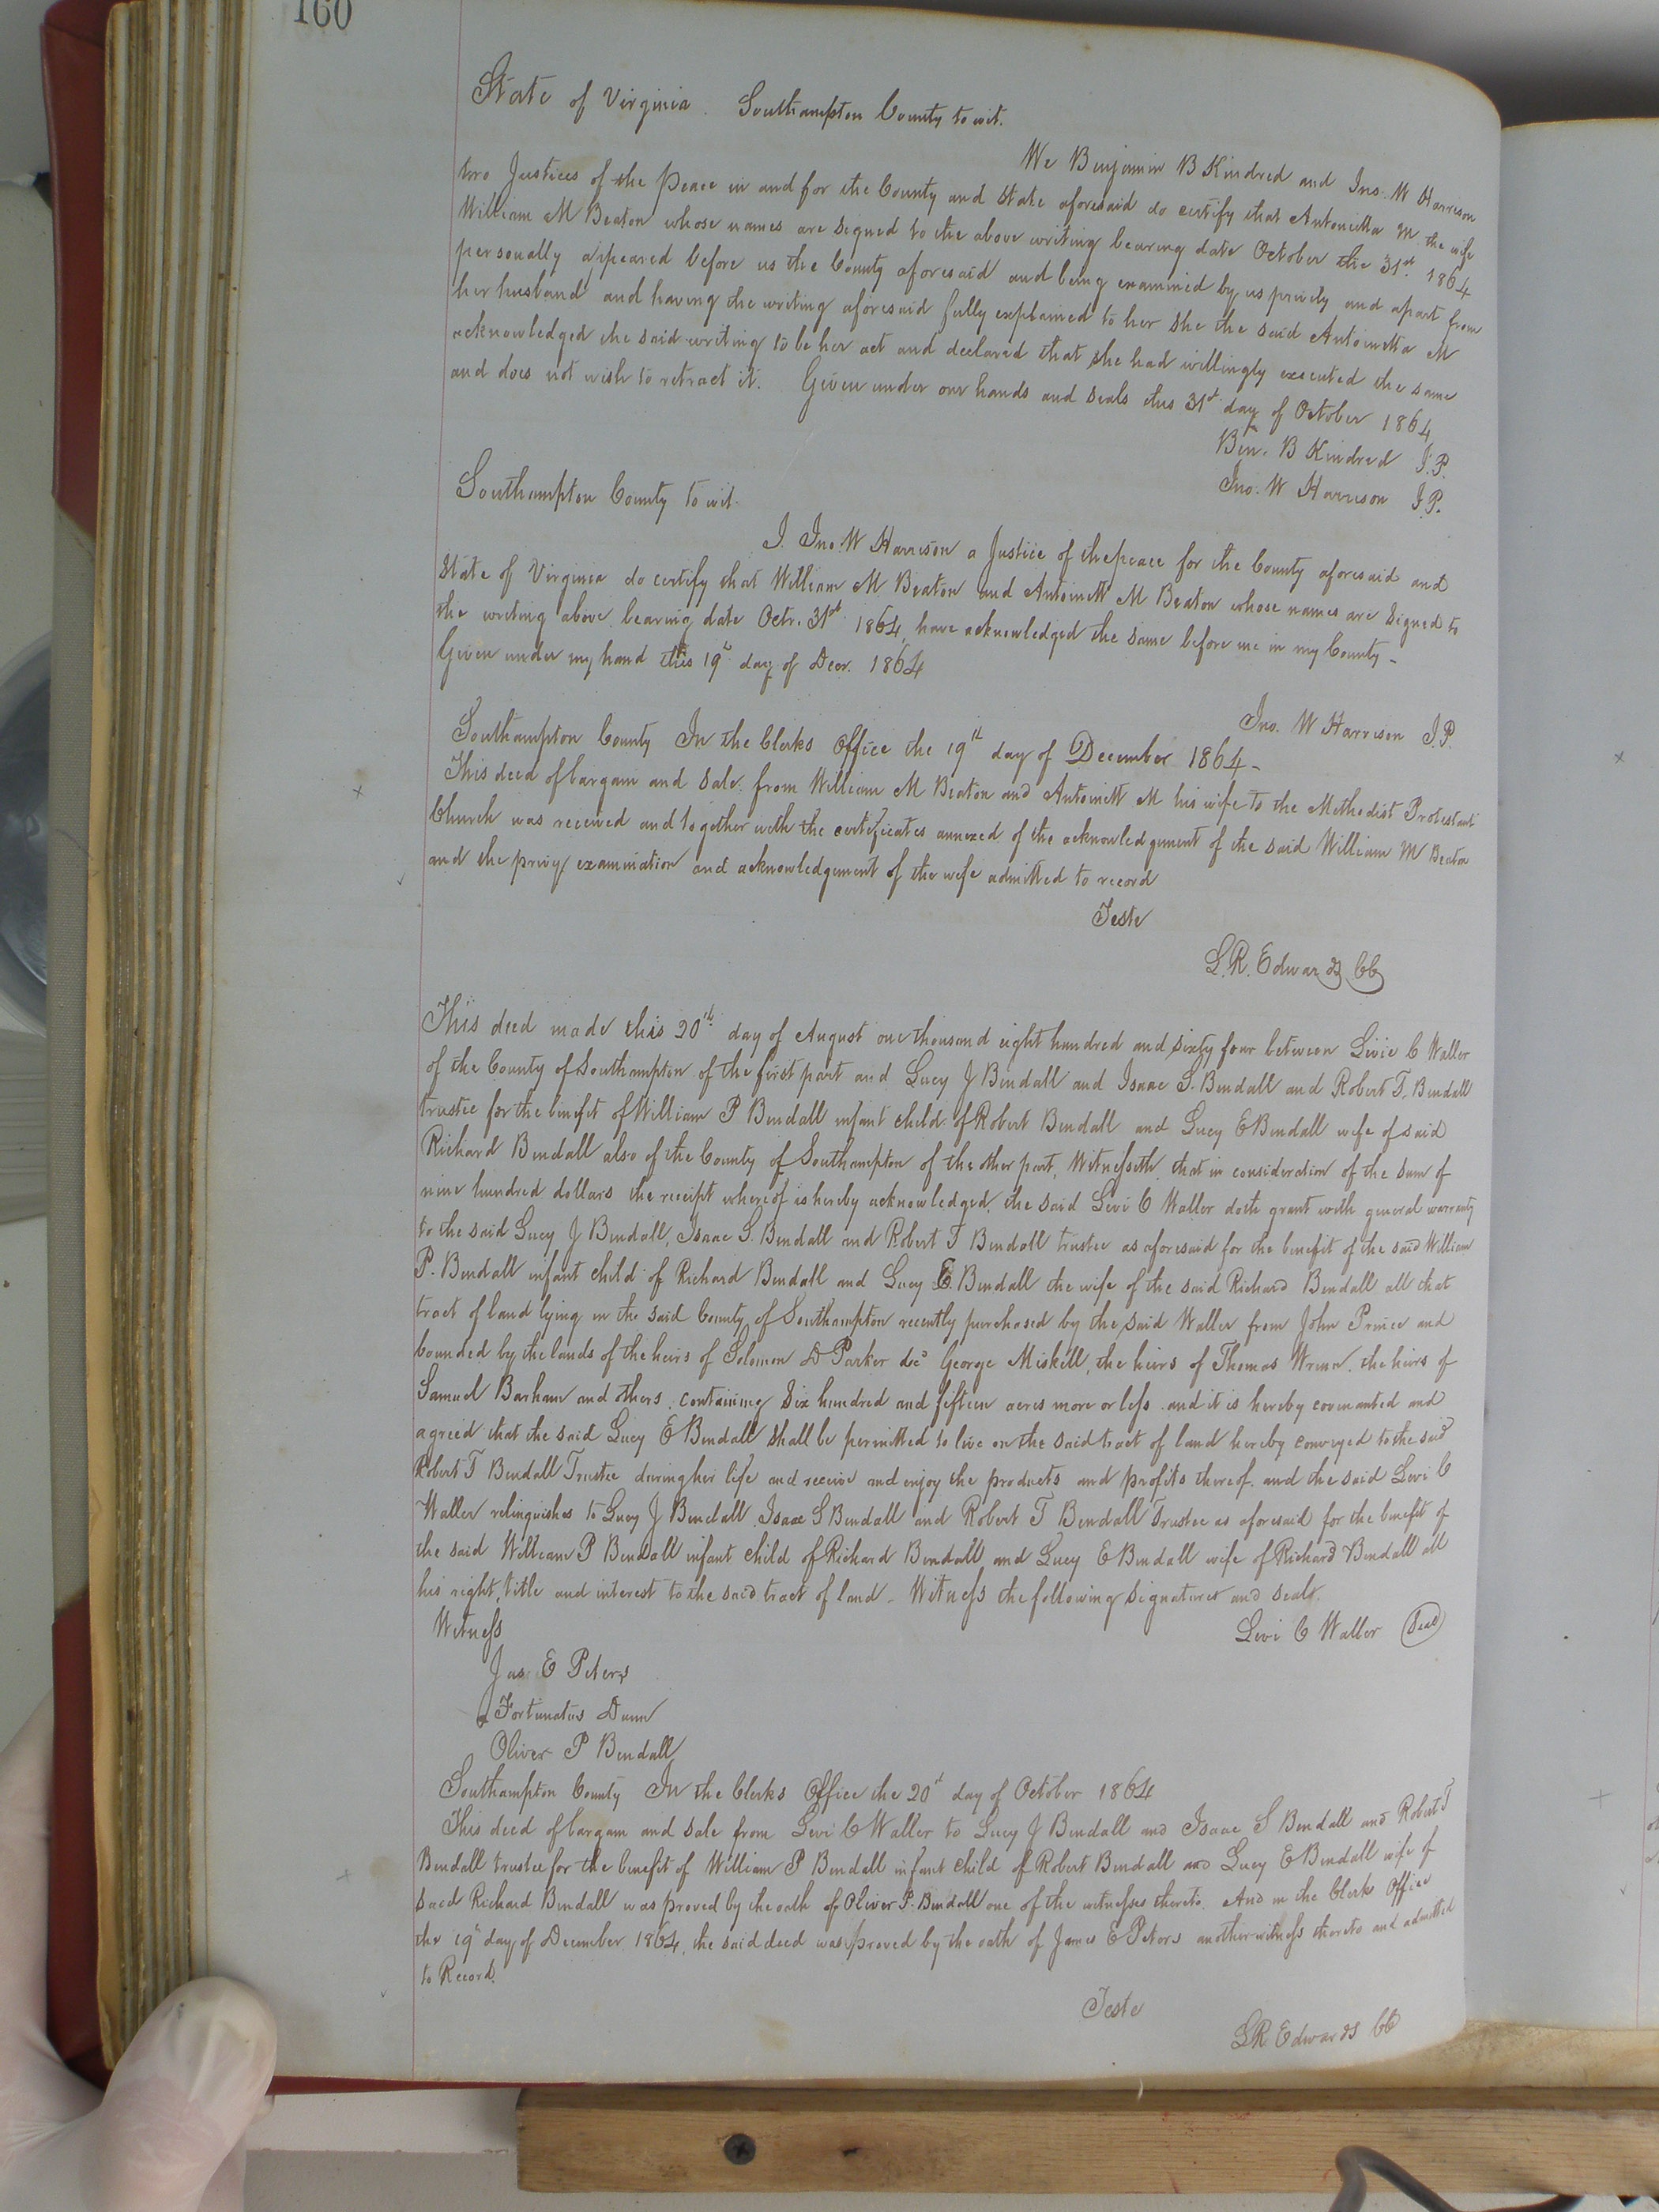 160
State of Virginia. Southampton County to wit.
We Benjamin B Kindred and Jno. W Harrison
two Justices of the Peace in and for the County and State aforesaid do certify that Antonitta M the wife
William M Beaton whose names are signed to the above writing bearing date October the 31st 1864
personally appeared before us the County aforesaid and being examined by us privily and apart from
her husband and having the writing aforesaid fully explained to her she the said Antoinetta M
acknowledged the said writing to be her act and declared that she had willingly executed the same
and does not wish to retract it. Given under our hands and seals this 31st day of October 1864
Ben. B Kindred J.P.
Jno. W Harrison J.P.
Southampton County to wit.
I. Jno. W Harrison a Justice of the peace for the County aforesaid and
State of Virginia do certify that William M Beaton and Antoinett M Beaton whose names are signed to
the writing above bearing date Octr. 31st 1864, have acknowledged the same before me in my County -
Given under my hand this 19th day of Decr. 1864
Jno. W Harrison J.P.
Southampton County In the Clerks Office the 19th day of December 1864 -
This deed of bargain and sale from William M Beaton and Antoinett M his wife to the Methodist Protestant
Church was received and together with the certificates annexed of the acknowledgement of the said William M Beaton
and the privy examination and acknowledgement of the wife admitted to record
Teste
L.R. Edwards CC
This deed made this 20th day of August one thousand eight hundred and sixty four between Livie C Waller
of the County of Southampton of the first part and Lucy J Bendall and Isaac S. Bendall and Robert T. Bendall
trustee for the benefit of William P Bendall infant child of Robert Bendall and Lucy E Bendall wife of said
Richard Bendall also of the County of Southampton of the other part, Witnesseth that in consideration of the sum of
nine hundred dollars the receipt whereof is hereby acknowledged, the said Levi C Waller doth grant with general warranty
to the said Lucy J Bendall, Isaac S. Bendall and Robert T Bendall trustee as aforesaid for the benefit of the said William
P. Bendall infant child of Richard Bendall and Lucy E. Bendall the wife of the said Richard Bendall all that
tract of land lying in the said County of Southampton recently purchased by the said Waller from John Prince and
bounded by the lands of the heirs of Solomon D Parker dec George Miskell, the heirs of Thomas Wrenn. the heirs of
Samuel Barham and others, containing Six hundred and fifteen acres more or less and it is hereby covenanted and
agreed that the said Lucy E Bendall shall be permitted to live on the said tract of land hereby conveyed to the said
Robert T Bendall Trustee during her life and receive and enjoy the products and profits thereof. and the said Levi C
Waller relinquishes to Lucy J Bendall Isaac S Bendall and Robert T Bendall Trustee as aforesaid for the benefit of
the said William P Bendall infant child of Richard Bendall and Lucy E Bendall wife of Richard Bendall all
his right, title and interest to the said tract of land - Witness the following signatures and seals.
Witness Levi C Waller Seal
Jas E Peters
Fortunatus Dunn
Oliver P Bendall
Southampton County In the Clerks Office the 20th day of October 1864
This deed of bargain and sale from Levi C Waller to Lucy J Bendall and Isaac S Bendall and Robert T
Bendall trustee for the benefit of William P Bendall infant child of Robert Bendall and Lucy E Bendall wife of
said Richard Bendall was proved by the oath of Oliver P. Bendall one of the witnesses thereto. And in the Clerks Office
the 19th day of December 1864, the said deed was proved by the oath of James E Peters another witness thereto and admitted
to Record.
Teste
L.R. Edwards CC